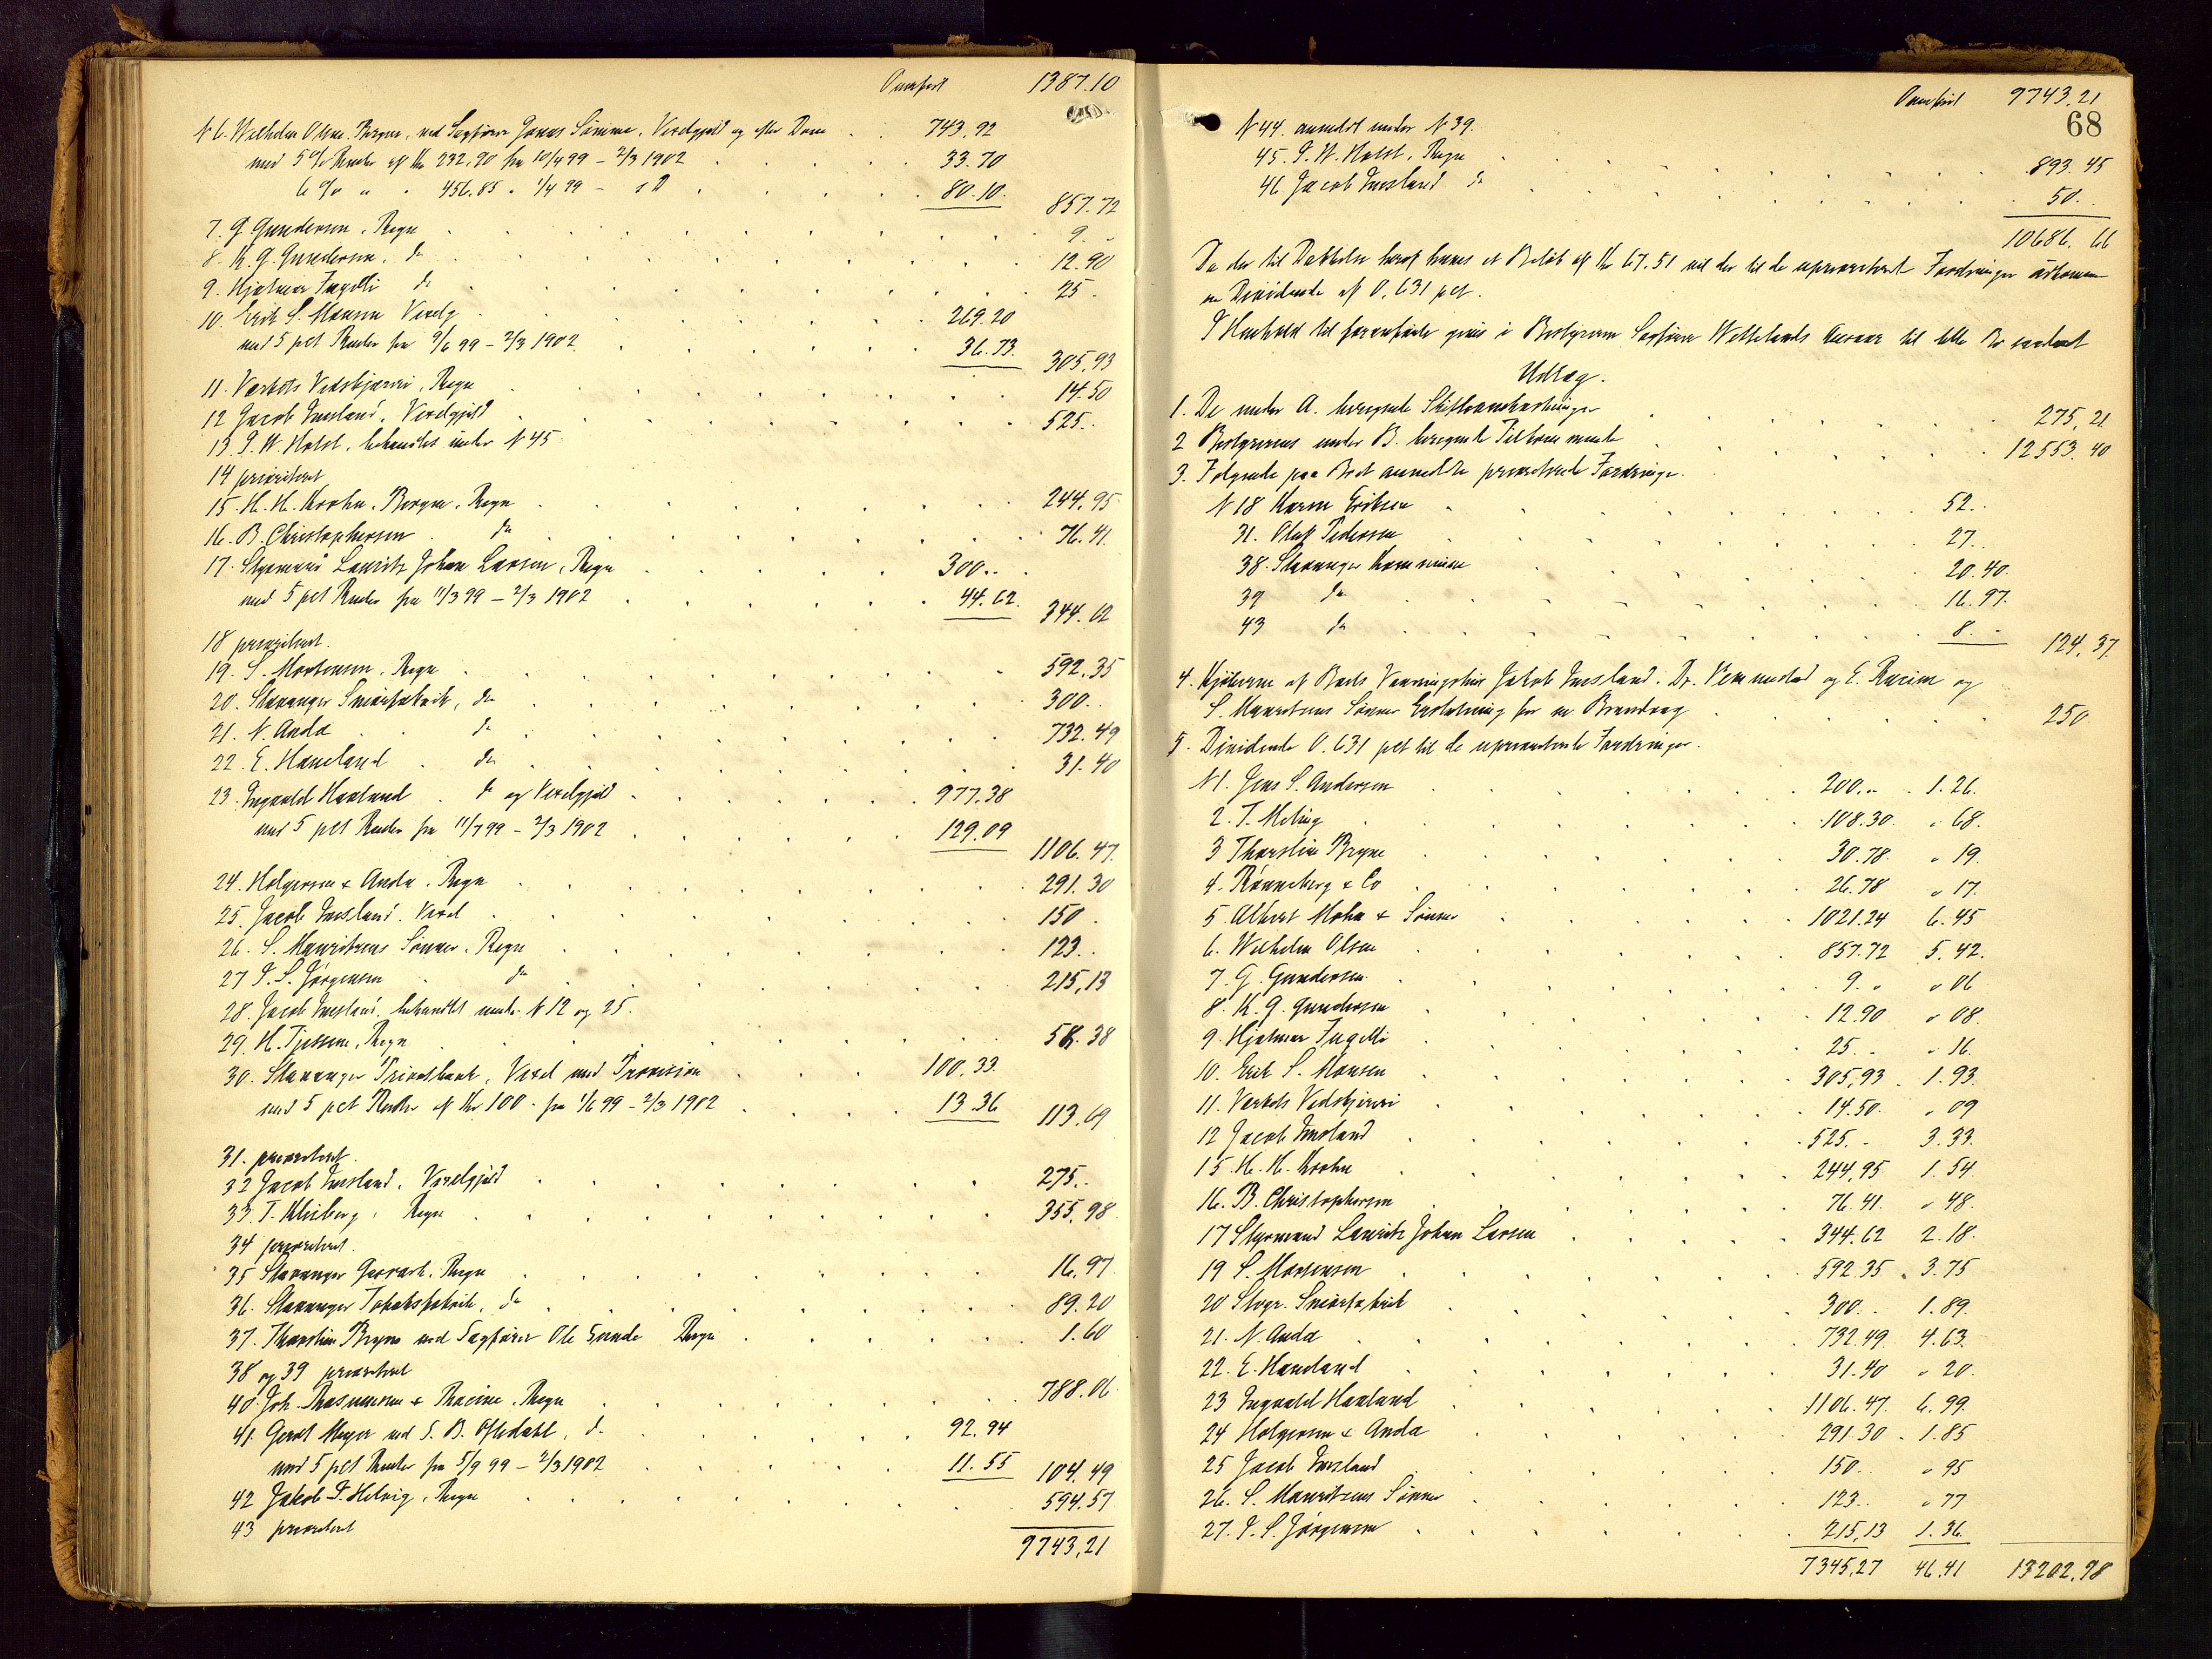 Overført 1387.10
N 6. Wilhelm Olsen, Bergen, ved Sagfører Jonas Sømme, Vexelgjæld og efter Dom 743.92
med 5 % Renter af Kr 232.20 fra 10/4 99 – 2/3 1902 33.70
6 % " " 456.85 " 1/4 99 – s D 80.10 857.72
7. G. Gundersen, Regn 9. "
8. K. G. Gundersen, do 12.90
9. Hjalmar Fugelli do 25.
10. Erik S. Hansen Vexelg 269.20
med 5 pct Renter fra 9/6 99 – 2/3 1902 36.73 305.93
11. Værkets Vedskjæreri, Regn 14.50
12 Jacob Imsland, Vexelgjæld 525..
13. I. W. Holst, behandlet under N 45
14 prioriteret
15. H. H. Krohn, Bergen, Regn 244.95
16. B. Christophersen do 76.41
17. Styrmand Lauritz Johan Larsen, Regn 300..
med 5 pct Renter fra 11/3 99 – 2/3 1902 44.62 344.62
18 prioriteret.
19. S. Mortensen, Regn 592.35
20. Stavanger Smørfabrik, do 300..
21. N. Anda do 732.49
22. E. Haneland do 31.40
23. Ingvald Haaland do og Vexelgjæld 977.38
med 5 pct Renter fra 11/7 99 – 2/3 1902 129.09 1106.47
24. Holgersen & Anda, Regn 291.30
25. Jacob Imsland, Vexel 150.
26. S. Mauritzens Sønner, Regn 123..
27 I. S. Jørgensen do 215,13
28. Jacob Imsland, behandlet under N 12 og 25.
29. H. Tjessem, Regn 58.38
30. Stavanger Privatbank, Vexel med Provision 100.33
med 5 pct Renter af Kr 100 – fra 1/6 99 – 2/3 1902 13.36 113.69
31. prioriteret.
32 Jacob Imsland, Vexelgjæld 275..
33. T. Kleiberg, Regn 355.98
34 prioriteret.
35 Stavanger Gasværk, Regn 16.97
36. Stavanger Tobaksfabrik, do 89.20
37. Thorstein Bryne ved Sagfører Ole Sunde Regn 1.60
38 og 39 prioriteret
40. Joh. Rasmussen & Racine, Regn 788.06
41 Gerdt Meyer ved S. B. Oftedahl, do 92.94
med 5 pct Renter fra 5/9 99 – 2/3 1902 11.55 104.49
42 Jakob I. Helvig, Regn 594.57
43 prioriteret
9743,21
Overført 9743.21
68
N 44. anmeldt under N 39.
45. I. W. Holst, Regn 893.45
46 Jacob Imsland do 50..
10686.66
Da der til Dækkelse heraf haves et Beløb af Kr 67.51 vil der til de uprioriterte Fordringer udkomme
en Dividende af 0,631 pct.
I Henhold til foranførte gives i Bestyreren Sagfører Wettelands Ansvar til dette Bo saadant
Udlæg.
1. De under A. beregnede Skifteomkostninger 275,21
2 Bestyrerens under B. beregnede Tilkommende 12553.40
3. Følgende paa Boet anmeldte prioriterede Fordringer.
N 18 Karen Eriksen 52..
31. Oluf Pedersen 27..
38. Stavanger Kommune 20.40.
39 do 16.97.
43 do 8. – 124.37.
4. Kjøberne af Boets Vaaningshus Jakob Imsland, Dr. Vennestad og E. Racine og
S. Mauritzens Sønner Erstatning for en Brandvæg 250
5. Dividende 0.631 pct til de uprioriterte Fordringer.
N 1. Jens S. Andersen 200.. 1.26.
2. T. Meling 108.30. " 68.
3 Thorstein Bryne 30.78. " 19.
4. Rønneberg & Co 26.78 " 17.
5 Albert Mohn & Sønner 1021.24 6.45
6. Wilhelm Olsen 857.72 5.42.
7. G. Gundersen 9. " " 06
8. K. G. Gundersen 12.90 " 08.
9. Hjalmar Fugelli 25.. " 16.
10. Erik S. Hansen 305,93 1.93.
11. Værkets Vedskjæreri 14.50. " 09
12 Jacob Imsland 525.. 3.33.
15. H. H. Krohn 244,95 1.54.
16. B. Christophersen 76.41. " 48.
17 Styrmand Lauritz Johan Larsen 344.62 2.18.
19 S. Mortensen 592.35 3.75
20 Stvgr. Smørfabrik 300.. 1.89.
21. N. Anda 732.49 4.63.
22. E. Haneland 31.40 " 20.
23 Ingvald Haaland 1106.47. 6.99.
24 Holgersen & Anda 291.30 1.85
25 Jacob Imsland 150.. " 95
26. S. Mauritzens Sønner 123.. " 77
27. I. S. Jørgensen 215,13 1.36.
7345,27 46.41 13202.98